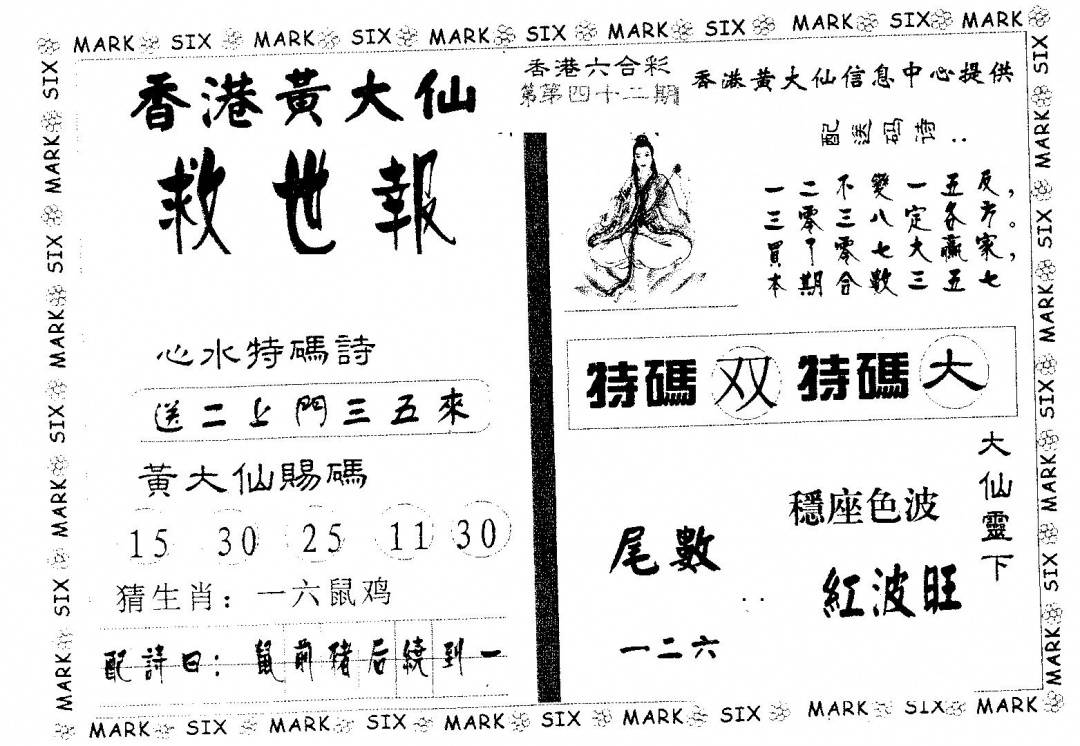 MARK SIX MARK SIX MARK SIX MARK SIX MARK SIX MARK
香港黃大仙
救世報
心水特碼詩
送二上門三五來
黃大仙賜碼
15 30 25 11 30
猜生肖：一六鼠鸡
配詩曰：鼠前猪后繞到一
香港六合彩
第第四十二期
香港黃大仙信息中心提供
配送码诗：
一二不變一五反，
三零三八定各方。
買下零七大贏家，
本期合數三五七
特碼 双 特碼 大
大仙靈下
穩座色波
紅波旺
尾數
一二六
SIX MARK SIX MARK SIX MARK SIX MARK
SIX MARK SIX MARK SIX MARK SIX MARK
MARK SIX MARK SIX MARK SIX MARK SIX MARK SIX MARK